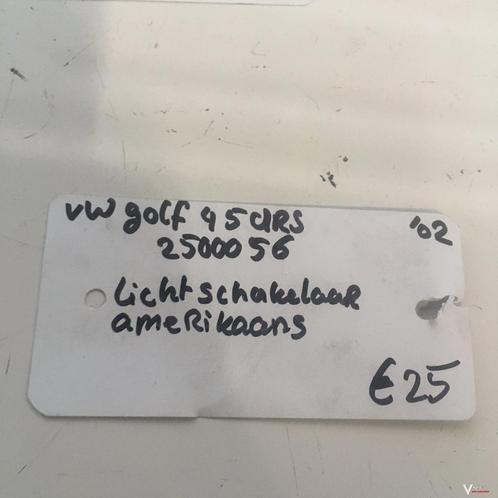 vw golf 4 5 dRS '02
2500056
Lichtschakelaar
amerikaans
€25